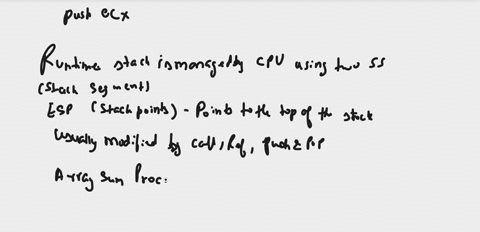 push ecx
Runtime stack is managed by CPU using two SS
(Stack Segment)
ESP (Stack points) - Points to the top of the stack
Usually modified by call, Ret, push & POP
Array Sum Proc: